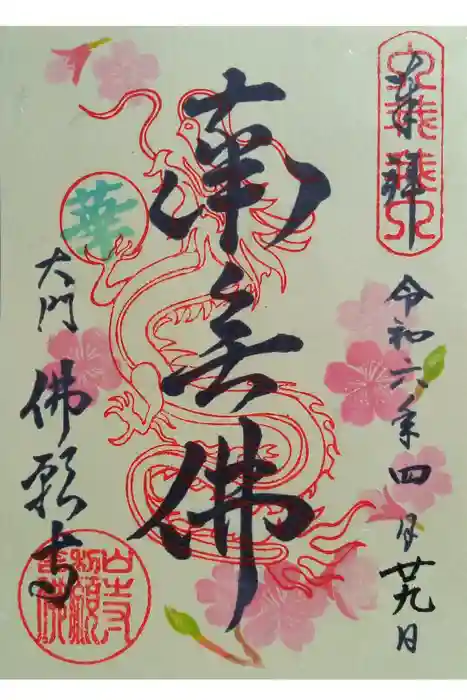 奉拝
令和六年四月廿九日
南無佛
華
大門
佛願寺